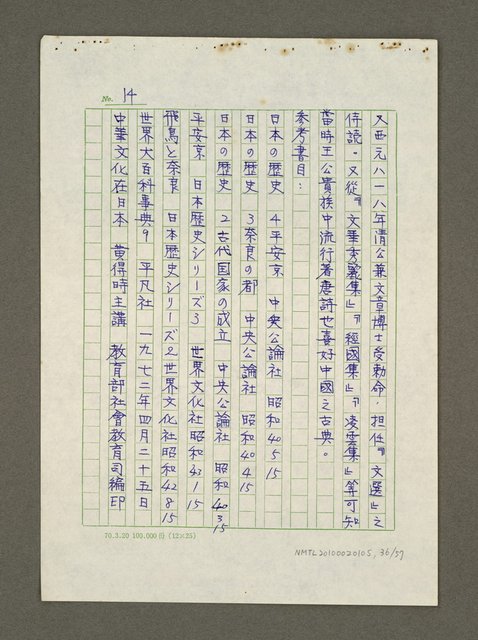 No. 14
又西元八一八年清公兼文章博士受勅命:担任『文選』之
侍読。又從『文華秀麗集』『經國集』『凌雲集』等可知
當時王公貴族中流行著唐詩也喜好中國之古典。
参考書目:
日本の歴史 4平安京 中央公論社 昭和40 5 15
日本の歴史 3奈良の都 中央公論社 昭和40 4 15
日本の歴史 2古代国家の成立 中央公論社 昭和40 3 15
平安京 日本歴史シリーズ3 世界文化社 昭和43 1 15
飛鳥と奈良 日本歴史シリーズ2 世界文化社 昭和42 8 15
世界大百科事典9 平凡社 一九七二年四月二十五日
中華文化在日本 黄得時主講 教育部社會教育司編印
70.3.20 100.000 (l) (12×25)
NMTL20100020105, 36/57